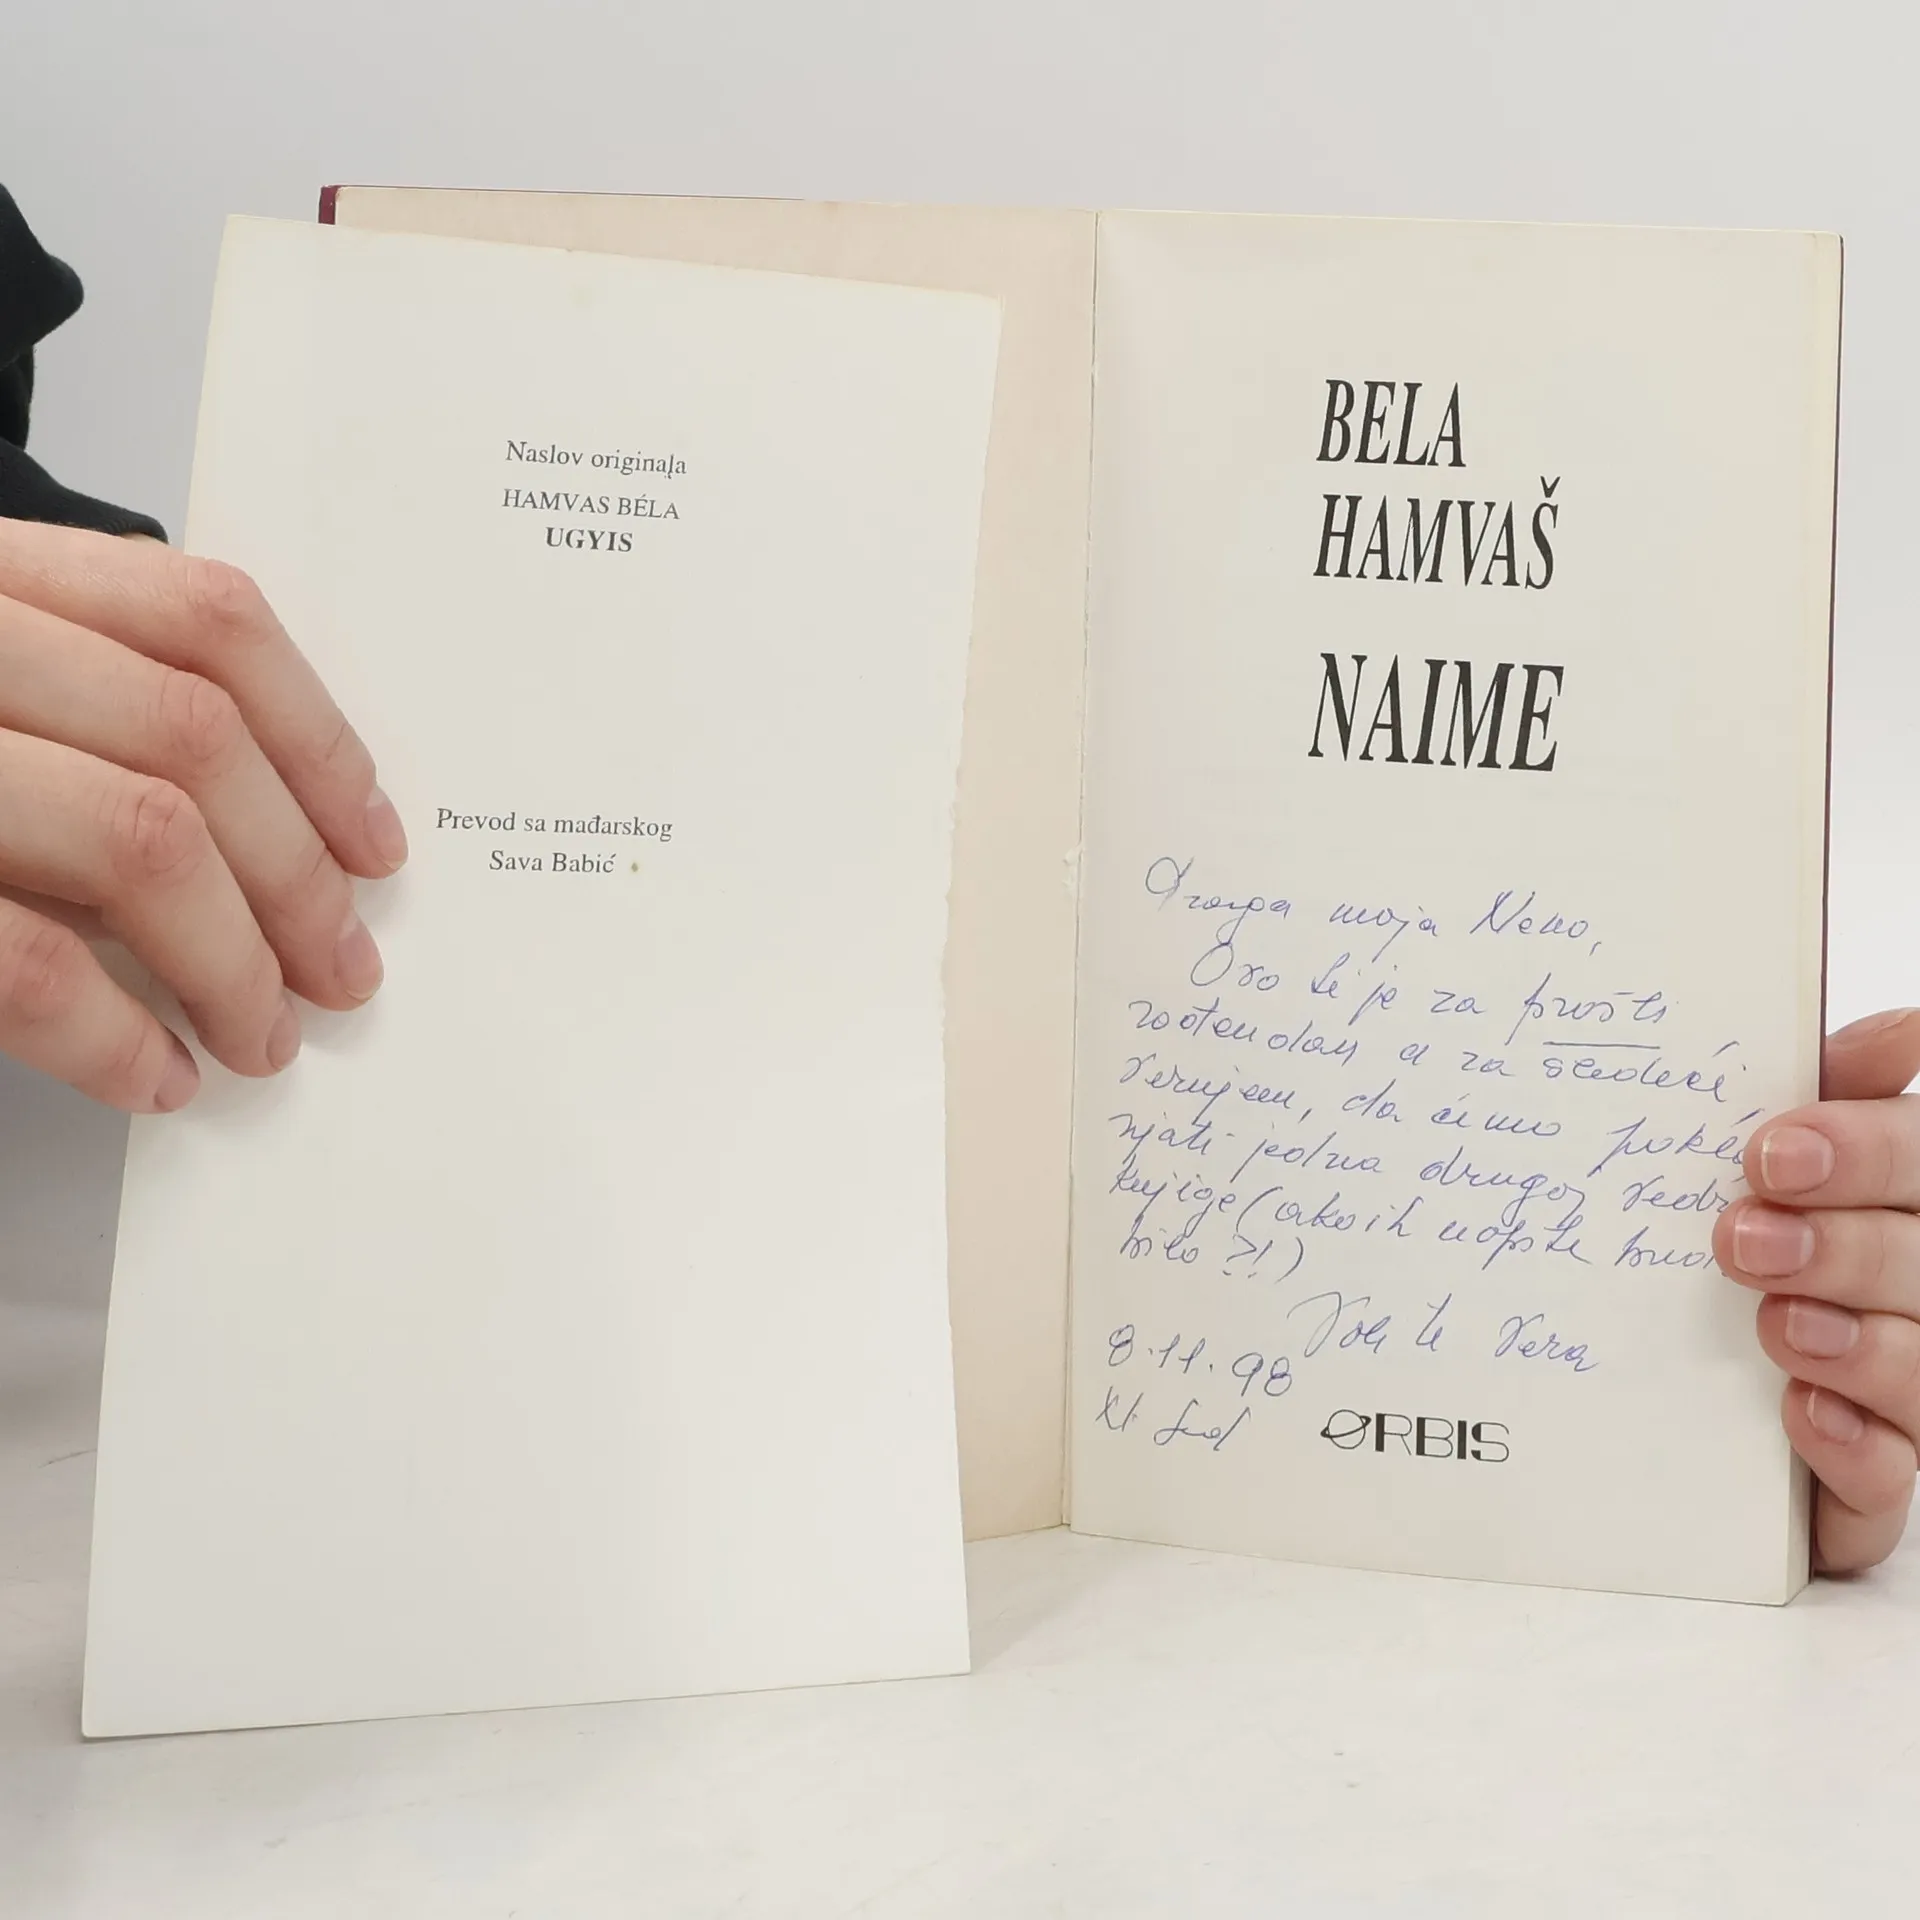 Naslov originala
HAMVAS BÉLA
UGYIS
Prevod sa mađarskog
Sava Babić
BELA
HAMVAŠ
NAIME
Draga moja Neno,
Ovo ti je za prošli
rođendan a za sledeći,
verujem, da ćemo poklo
njati jedna drugoj vedr
knjige (ako ih uopšte bud
bilo ?!)
Voli te Vera
8.11.98
N. Sad
ORBIS